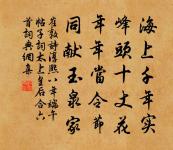 海上千年实
峰头十丈花
年年当令节
同献玉皇家
崔敦诗淳熙八年端午
帖子词太上皇后合六
首词典网集